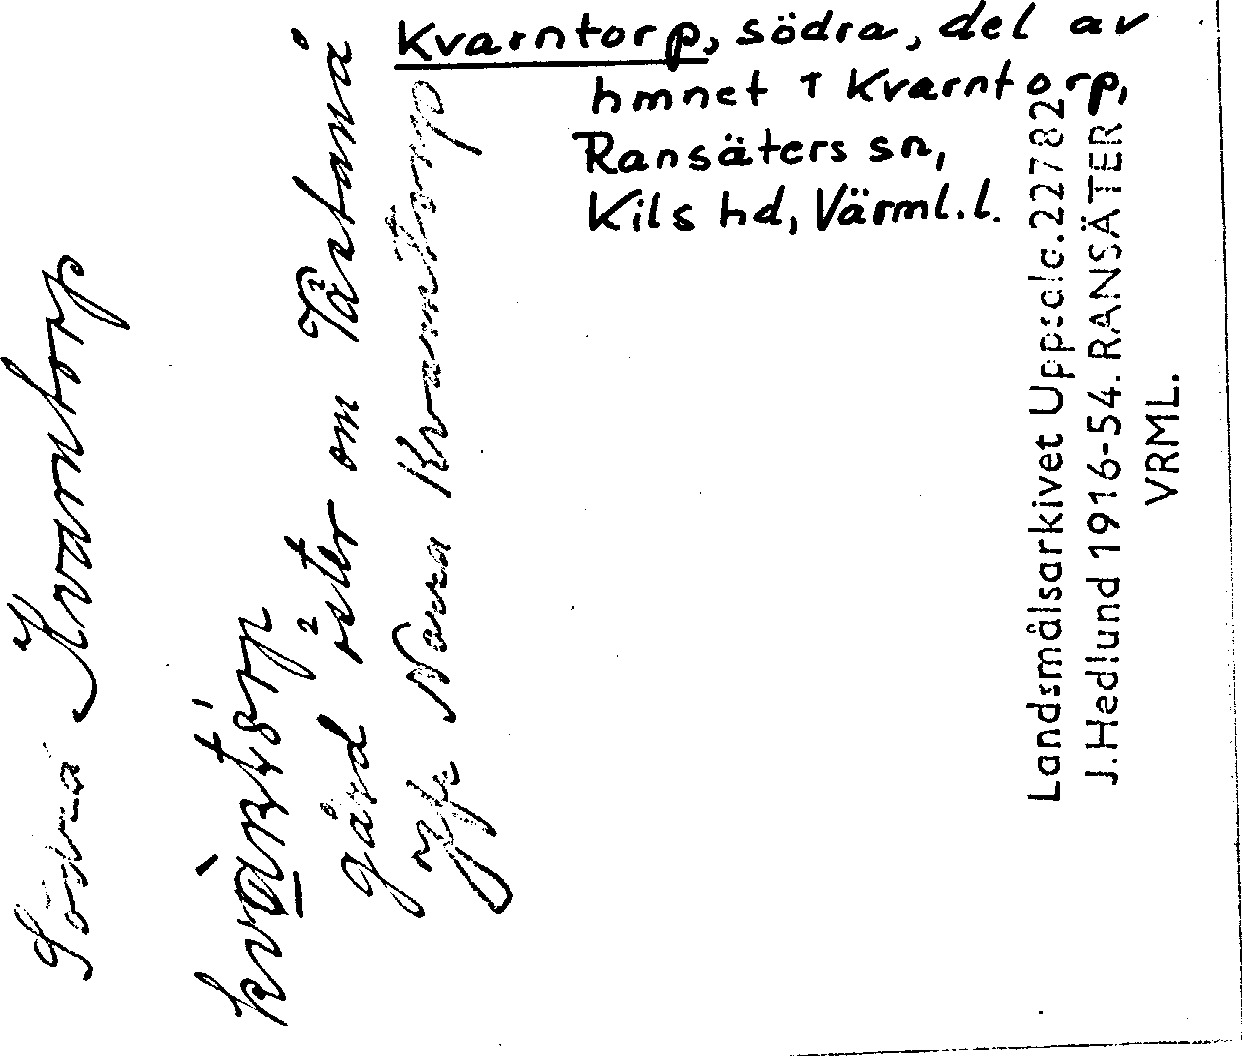 Kvarntorp, södra, del av
hmnet 1 Kvarntorp,
Ransäters sn,
Kils hd, Värml.l.
Södra Kvarntorp
gård öster om Tåstanå
Jfr Norra Kvarntorp
Landsmålsarkivet Uppsala. 22782
J. Hedlund 1916-54. RANSÄTER
VRML.